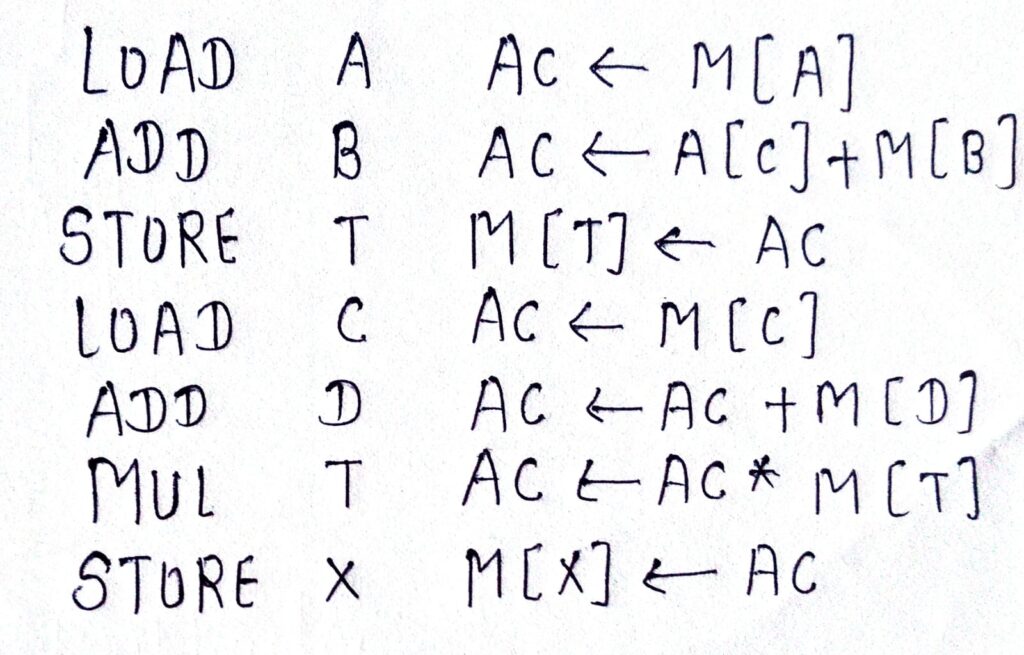 LOAD A AC ← M[A]
ADD B AC ← A[C]+M[B]
STORE T M[T] ← AC
LOAD C AC ← M[C]
ADD D AC ← AC + M[D]
MUL T AC ← AC * M[T]
STORE X M[X] ← AC